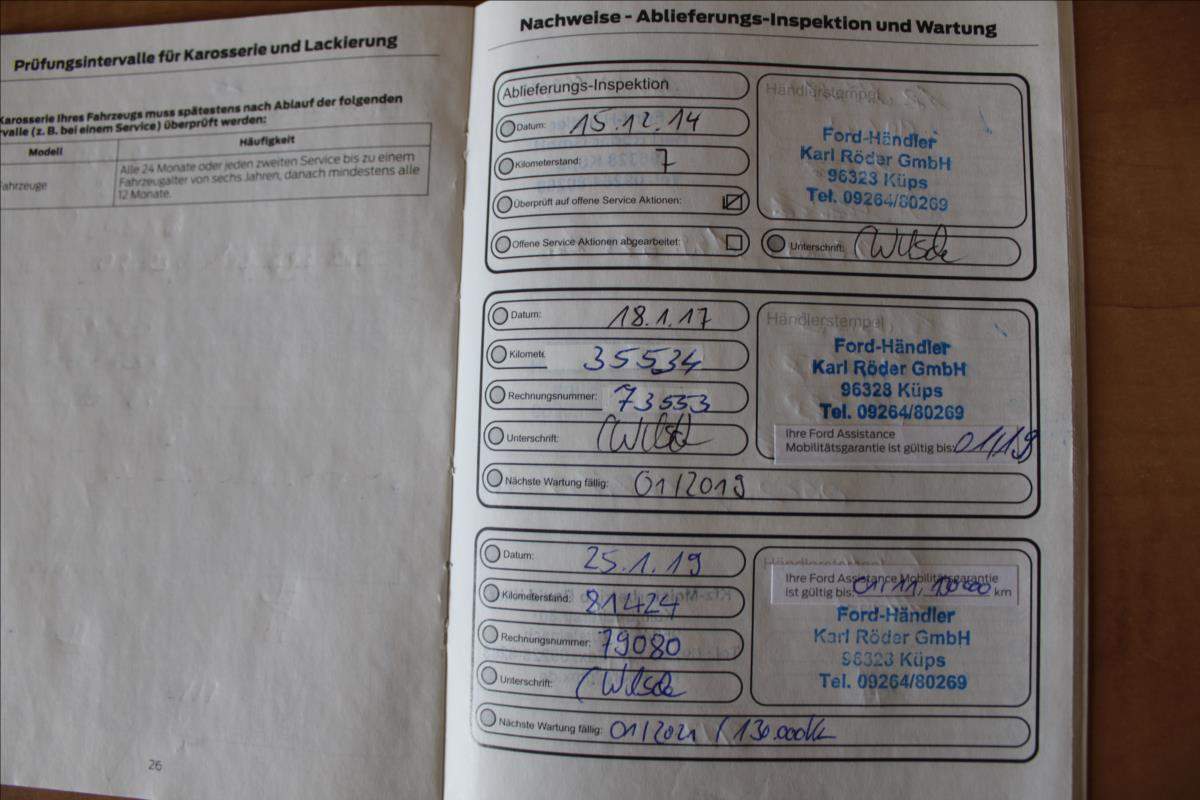 Prüfungsintervalle für Karosserie und Lackierung
Karosserie Ihres Fahrzeugs muss spätestens nach Ablauf der folgenden
rvalle (z. B. bei einem Service) überprüft werden:
Modell
Häufigkeit
ahrzeuge
Alle 24 Monate oder jeden zweiten Service bis zu einem
Fahrzeugalter von sechs Jahren, danach mindestens alle
12 Monate.
26
Nachweise - Ablieferungs-Inspektion und Wartung
Ablieferungs-Inspektion
Datum: 15.12.14
Kilometerstand: 7
Überprüft auf offene Service Aktionen:
Offene Service Aktionen abgearbeitet:
Händlerstempel
Ford-Händler
Karl Röder GmbH
96328 Küps
Tel. 09264/80269
Unterschrift:
Datum: 18.1.17
Kilomete 35534
Rechnungsnummer: 73553
Unterschrift:
Händlerstempel
Ford-Händler
Karl Röder GmbH
96328 Küps
Tel. 09264/80269
Ihre Ford Assistance
Mobilitätsgarantie ist gültig bis: 01/19
Nächste Wartung fällig: 01/2019
Datum: 25.1.19
Kilometerstand: 81424
Rechnungsnummer: 79080
Unterschrift:
Händlerstempel
Ihre Ford Assistance Mobilitätsgarantie
ist gültig bis: km
Ford-Händler
Karl Röder GmbH
96328 Küps
Tel. 09264/80269
Nächste Wartung fällig: 01/2021 / 130.000